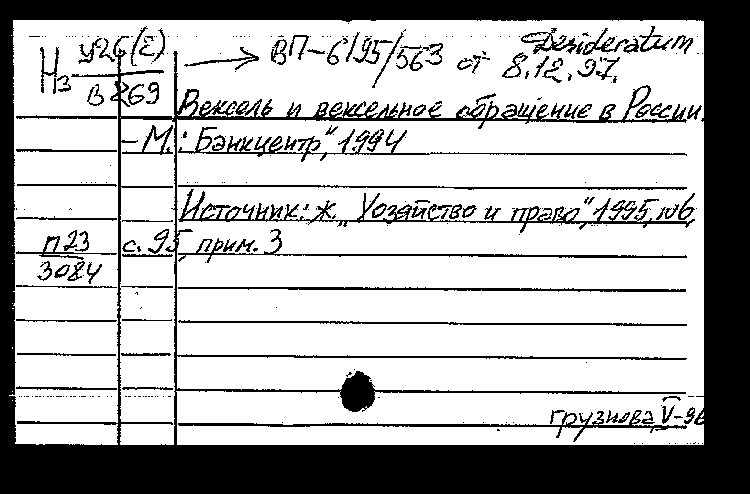 Desideratum
Нз У26(Е) → ВП-6195/563 от 8.12.97.
В 269
Вексель и вексельное обращение в России.
- М.: Банкцентр", 1994
Источник: ж. „Хозяйство и право", 1995, №6,
п23 с. 95, прим. 3
3084
грузнова, V-96